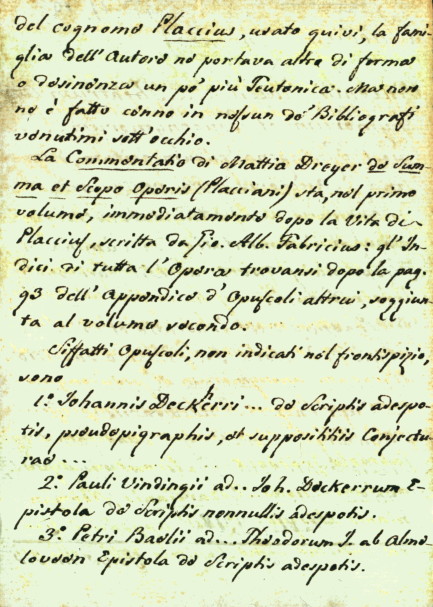 del cognome Placcius, usato quivi, la fami-
glia dell'Autore ne portava altre di forma
o desinenza un po' più Teutonica. Ma non
ne è fatto cenno in nessun de' Bibliografi
venutimi sott'occhio.
La Commentatio di Mattia Dreyer de Sum-
ma et Scopo Operis (Placciani) sta, nel primo
volume, immediatamente dopo la Vita di
Placcius, scritta da Gio. Alb. Fabricius: gl'In-
dici di tutta l'Opera trovansi dopo la pag.
93 dell'Appendice d'Opuscoli altrui, soggiun-
ta al volume secondo.
Siffatti Opuscoli, non indicati nel frontispizio,
sono
1.º Johannis Deckherri ... de Scriptis adespo-
tis, pseudepigraphis, et supposititiis Conjectu-
rae ...
2.º Pauli Vindingii ad... Joh. Deckerrum E-
pistola de Scriptis nonnullis adespotis.
3.º Petri Baelii ad... Theodorum J. ab Alme-
loveen Epistola de Scriptis adespotis.